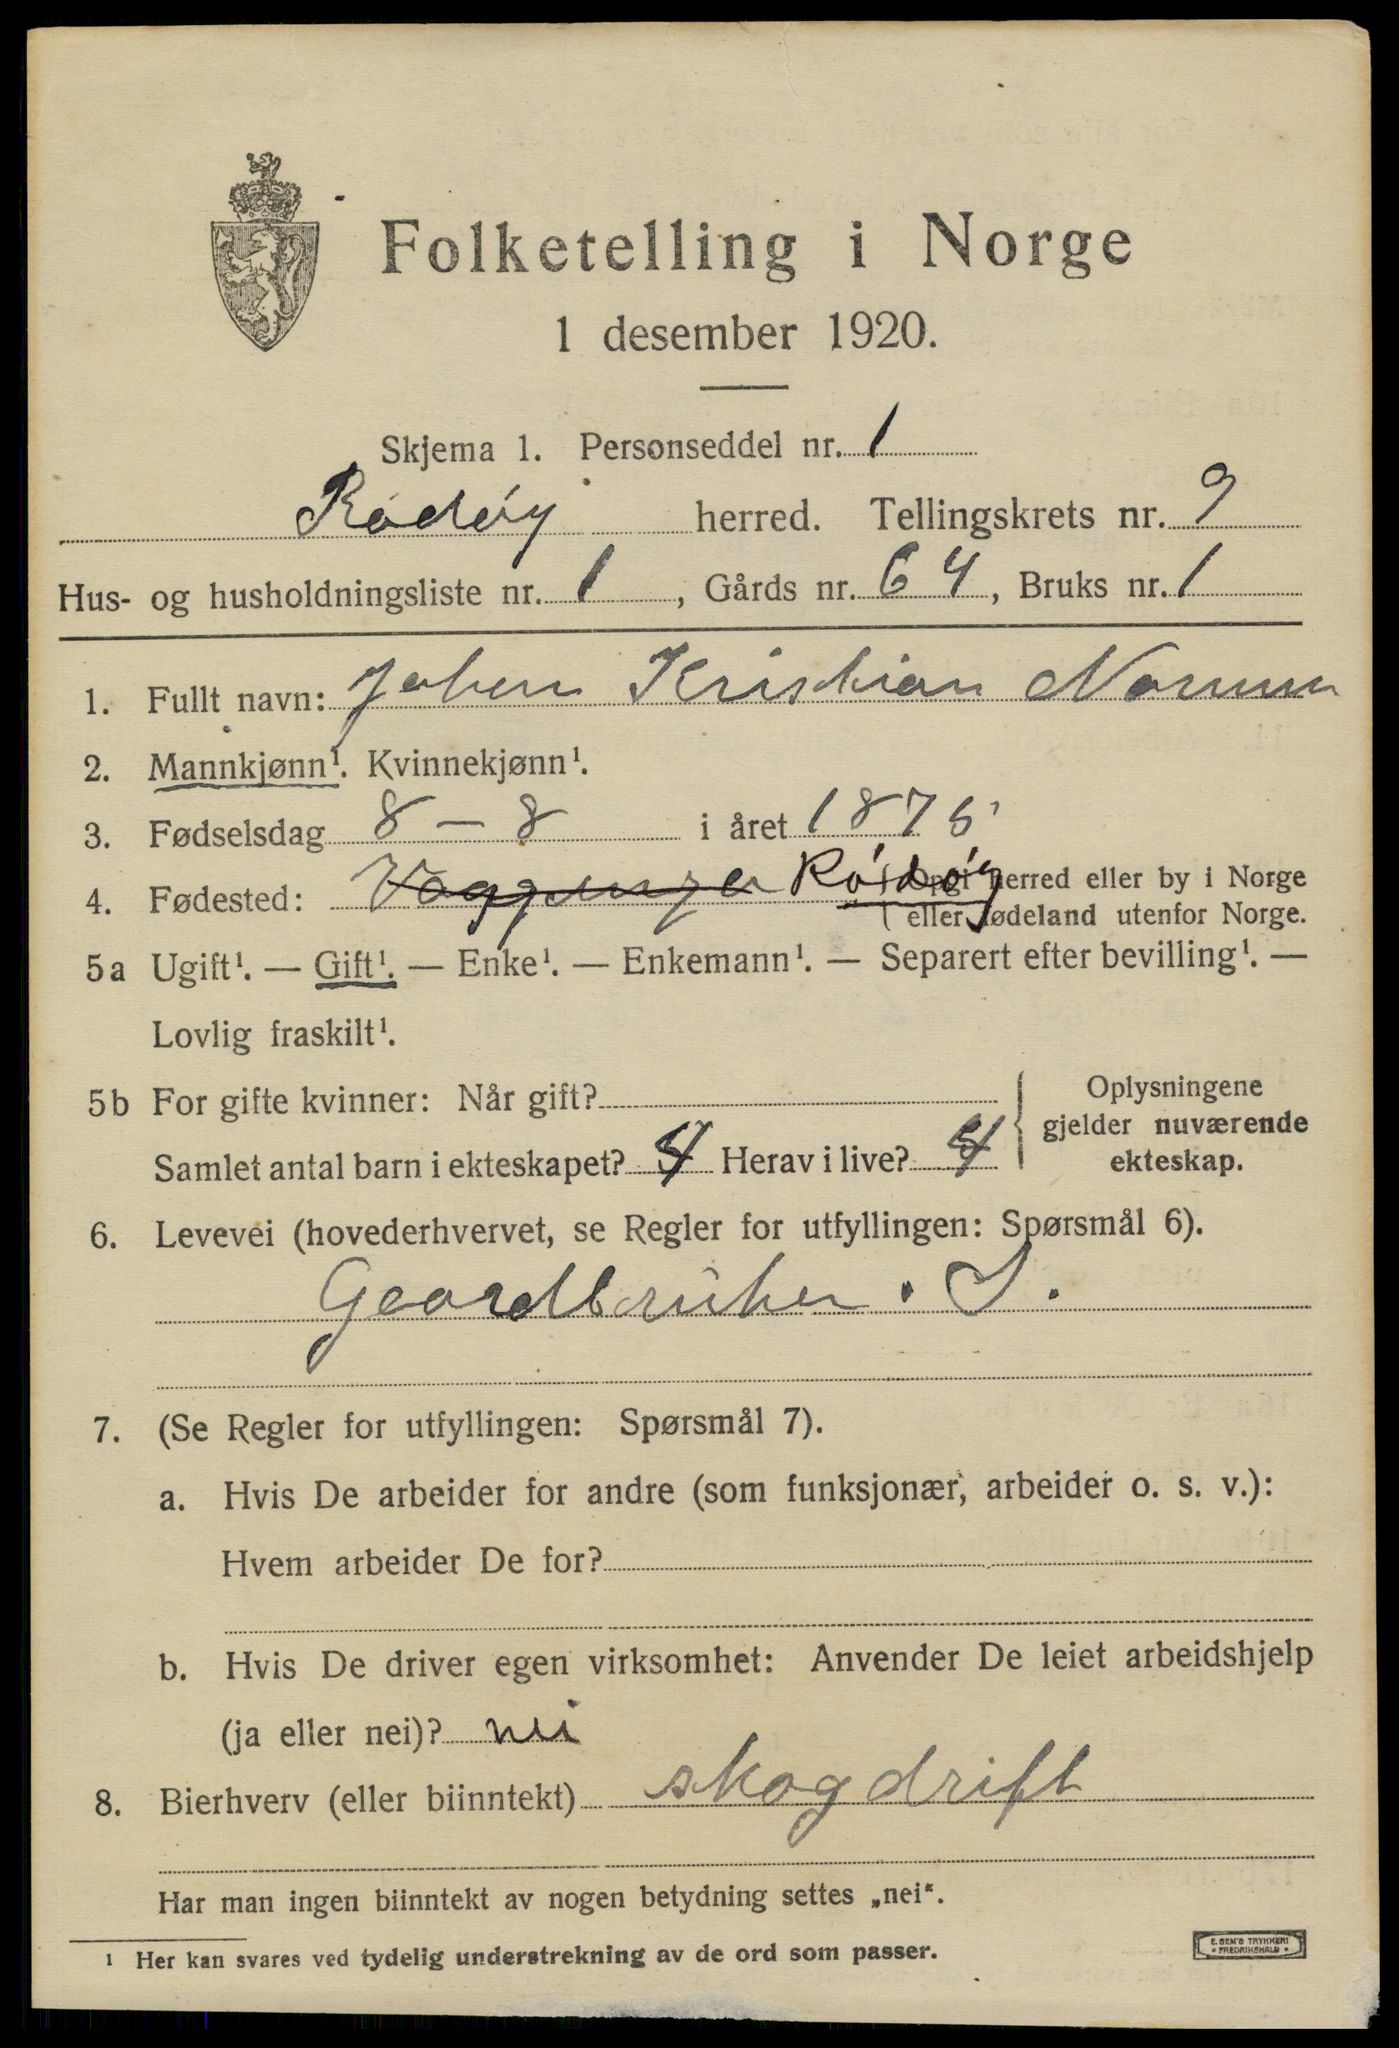 Folketelling i Norge
1 desember 1920.
Skjema 1. Personseddel nr. 1
Rødøy herred. Tellingskrets nr. 9
Hus- og husholdningsliste nr. 1, Gårds nr. 64, Bruks nr. 1
1. Fullt navn: Johan Kristian
2. Mannkjønn¹. Kvinnekjønn¹.
3. Fødselsdag 8 – 8 i året 1875
4. Fødested: Rødøy { Opgi herred eller by i Norge
eller fødeland utenfor Norge.
5a Ugift¹. — Gift¹. — Enke¹. — Enkemann¹. — Separert efter bevilling¹. —
Lovlig fraskilt¹.
5b For gifte kvinner: Når gift?
Samlet antal barn i ekteskapet? 4 Herav i live? 4
Oplysningene
gjelder nuværende
ekteskap.
6. Levevei (hovederhvervet, se Regler for utfyllingen: Spørsmål 6).
Gaardbruker. S.
7. (Se Regler for utfyllingen: Spørsmål 7).
a. Hvis De arbeider for andre (som funksjonær, arbeider o. s. v.):
Hvem arbeider De for?
b. Hvis De driver egen virksomhet: Anvender De leiet arbeidshjelp
(ja eller nei)? nei
8. Bierhverv (eller biinntekt) skogdrift
Har man ingen biinntekt av nogen betydning settes „nei“.
¹ Her kan svares ved tydelig understrekning av de ord som passer.
E. SEM'S TRYKKERI
• FREDRIKSHALD •